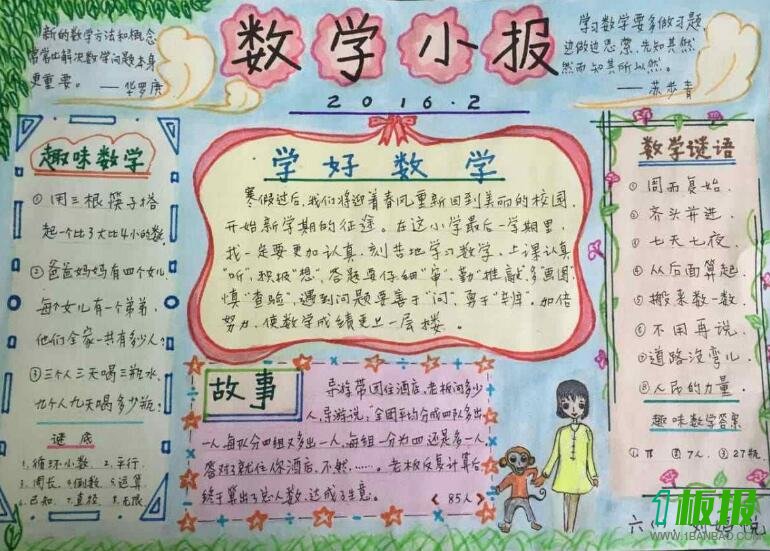 数学小报
2016.2
新的数学方法和概念
常常比解决数学问题本身
更重要。
——华罗庚
学习数学要多做习题,
边做边思索,先知其然
然而知其所以然。
——苏步青
趣味数学
①用三根筷子搭
起一个比3大比4小的数.
②爸爸妈妈有四个女儿
每个女儿有一个弟弟,
他们全家一共有多少人?
③三个人三天喝三瓶水,
九个人九天喝多少瓶?
谜底
1.循环小数 2.平行.
3.周长 4.倒数 5.运算
6.已知 7.直径 8.无限
学好数学
寒假过后,我们将迎着春风重新回到美丽的校园,
开始新学期的征途。在这小学最后一学期里,
我一定要更加认真,刻苦地学习数学,上课认真
“听”,积极“想”,答题要仔细“审”,勤“推敲”,多“画图”
慎“查验”,遇到问题要善于“问”,勇于“辩”,加倍
努力,使数学成绩更上一层楼。
故事
导游带团住酒店,老板问多少
人,导游说:“全团平均分成四队多出
一人,每队分四组又多出一人,每组一分为四还是多一人
答对了就住你酒店,不然,……。老板反复计算后
终于算出了总人数,达成了生意。
《85人》
数学谜语
①周而复始.
②齐头并进.
③七天七夜.
④从后面算起.
⑤搬来数一数.
⑥不用再说.
⑦道路没弯儿.
⑧人民的力量.
趣味数学答案
①π ②7人. ③27瓶.
六
1板报
WWW.1BANBAO.COM